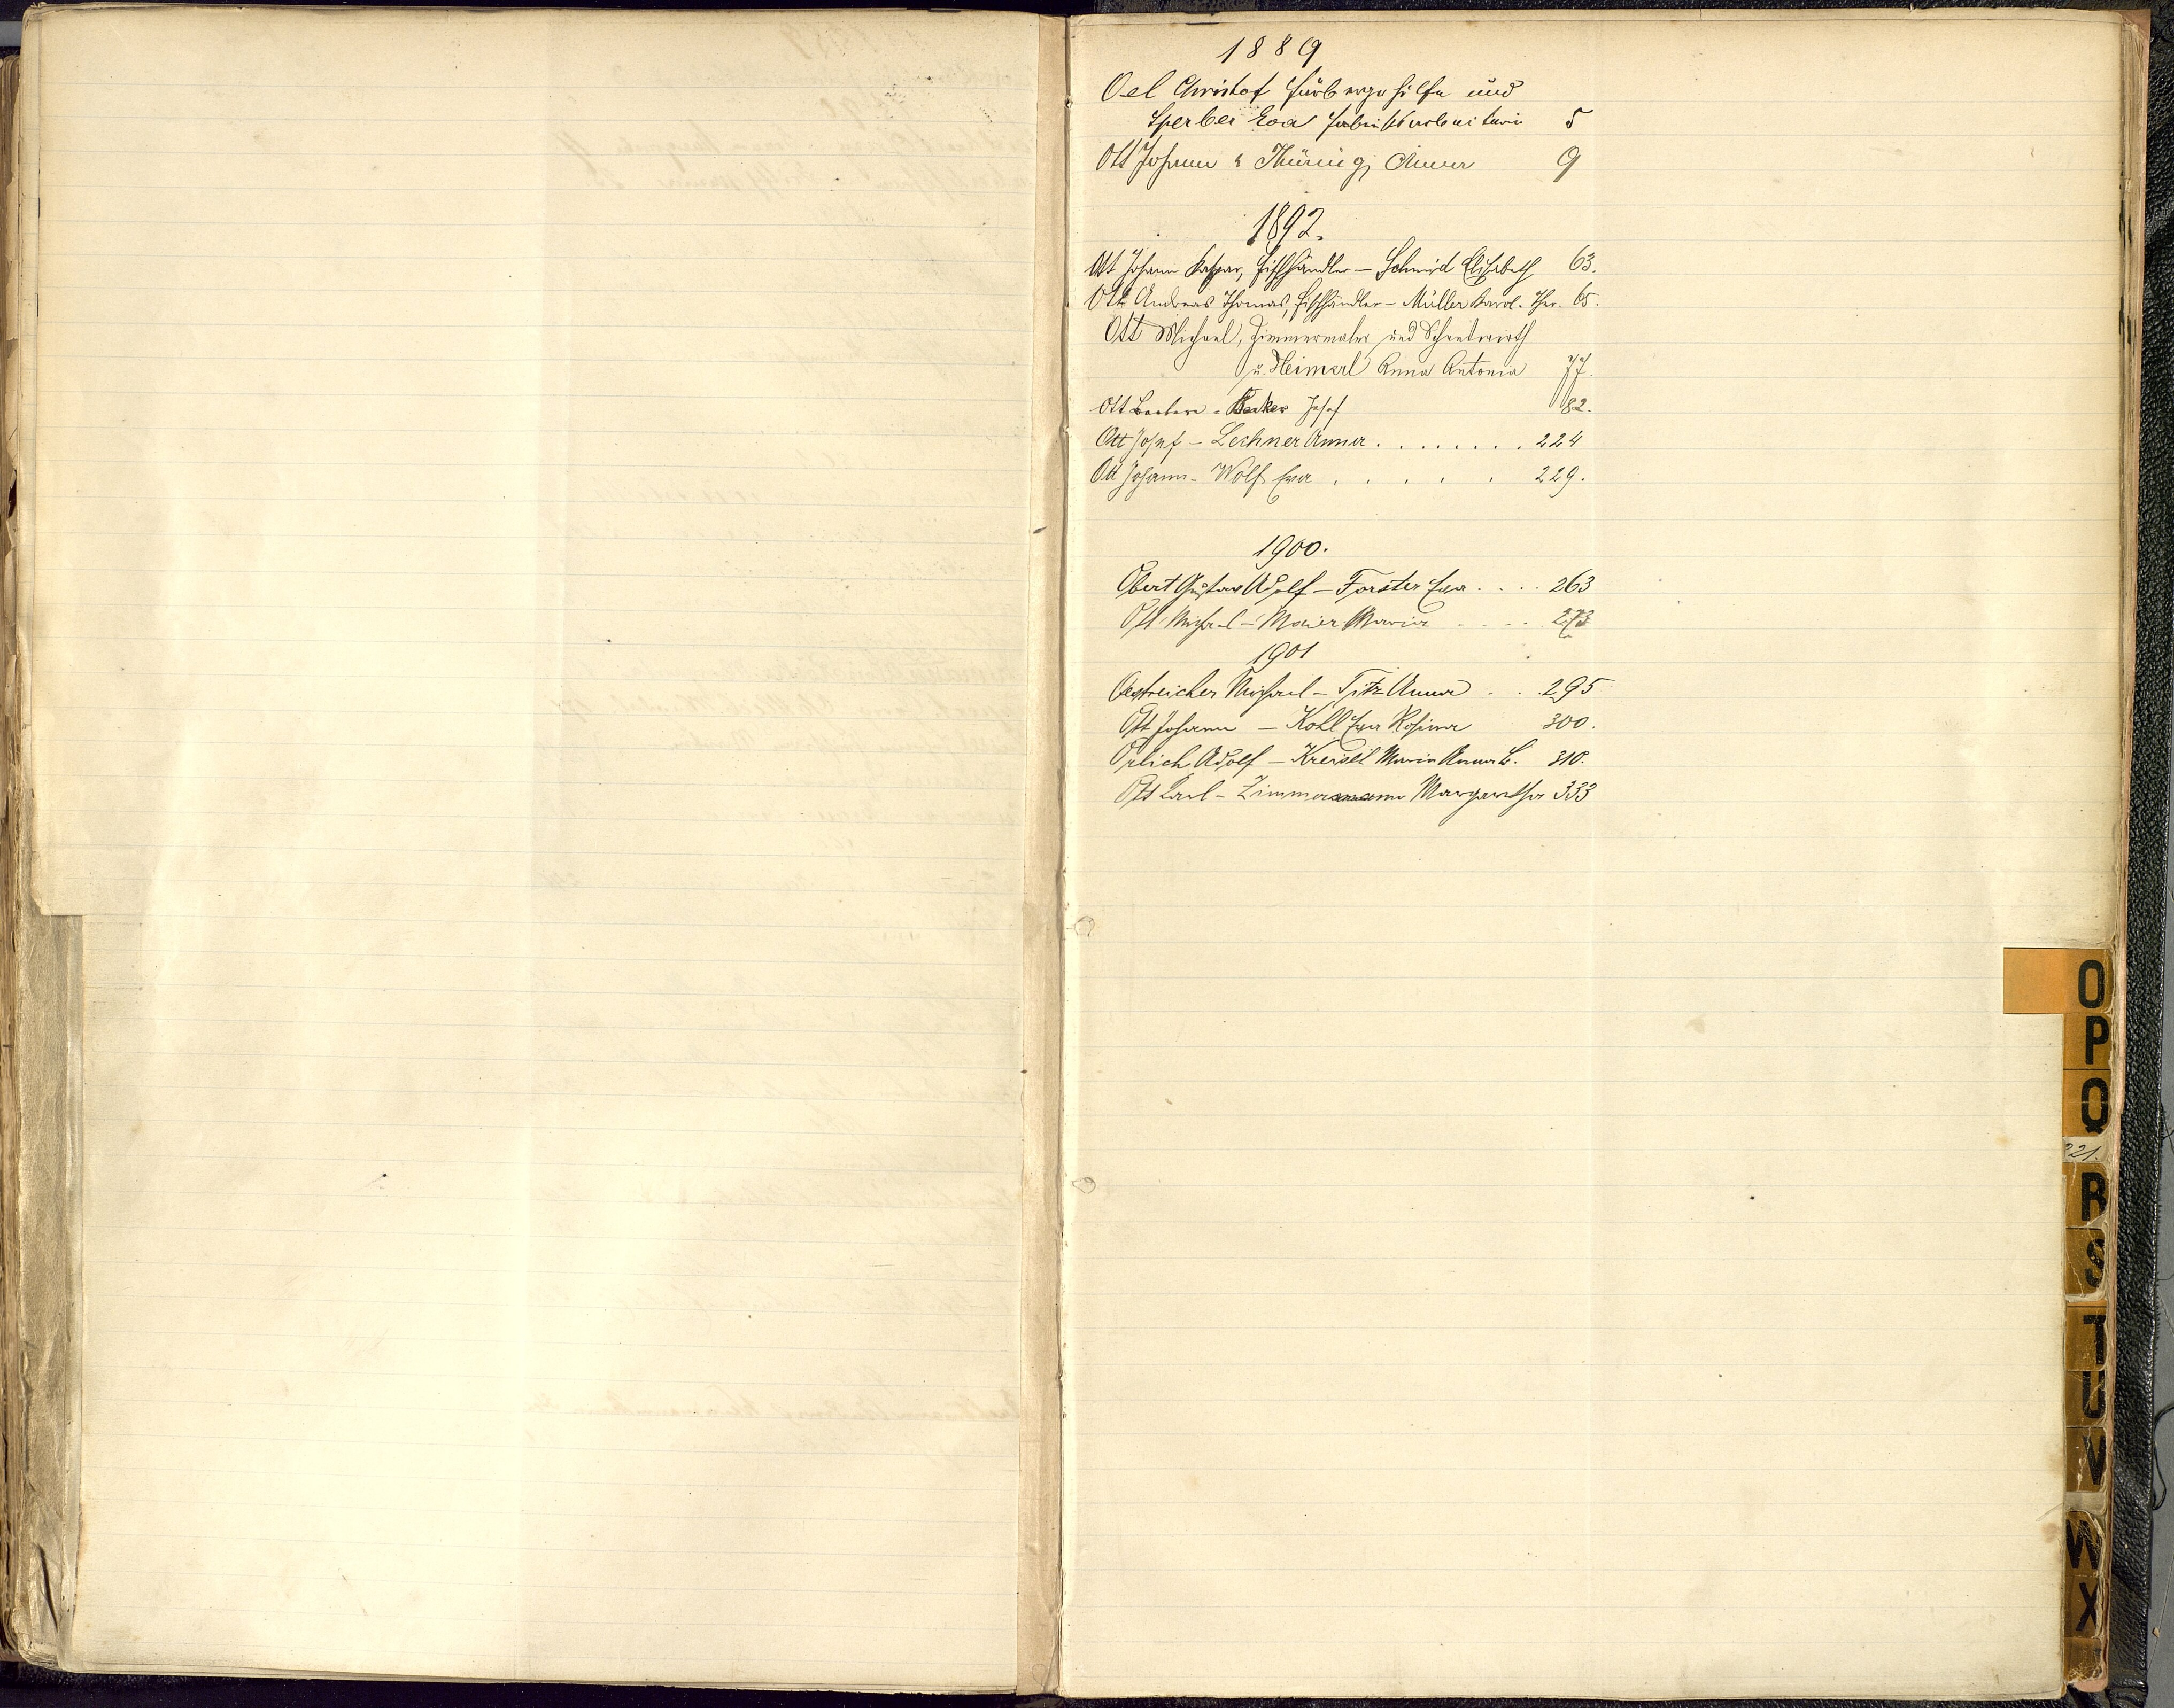 1889
Oel Christof Färbergehilfe und
Sperber Eva Fabrikarbeiterin 5
Ott Johann & Thüring, Anna 9
1892.
Ott Johann Kaspar, Fischhändler – Schmid Elisabeth 63.
Ott Andreas Thomas, Fischhändler – Müller Karol. Ther. 65.
Ott Michael, Zimmermaler und Schenkwirth
u. Heimerl Anna Antonia 77.
Ott Barbara - Becker Josef 82.
Ott Josef – Lechner Anna . . . . . . . 224
Ott Johann - Wolf Eva . . . . . 229.
1900.
Obert Gustav Adolf – Forster Eva . . . . 263
Ott Michael – Maier Maria . . . . 273
1901
Oestreicher Michael – Titz Anna . . 295
Ott Johann – Kohl Eva Rosina 300.
Orlich Adolf – Kreisel Maria Anna B. 310.
Ott Karl – Zimmermann Margaretha 333
O
P
Q
221.
R
S
T
U
V
W
X